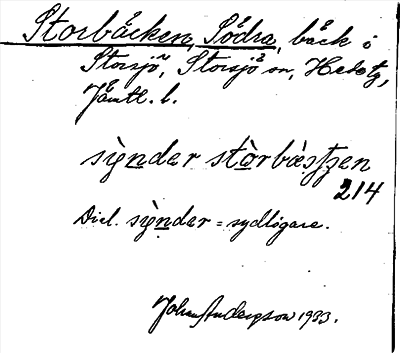 Storbäcken, Södra, bäck i
Storsjö, Storsjö sn, Hede tg,
Jämtl. l.
sỳnder stòrbäʃʃen
214
Dial. sỳnder = sydligare.
Johan Andersson 1933.